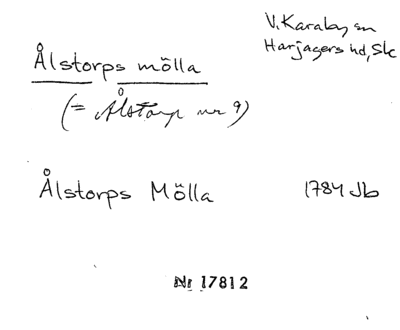 V. Karaby sn
Harjagers hd, Sk
Ålstorps mölla
(= Ålstorp nr 9)
Ålstorps Mölla 1784 Jb
Nr 17812